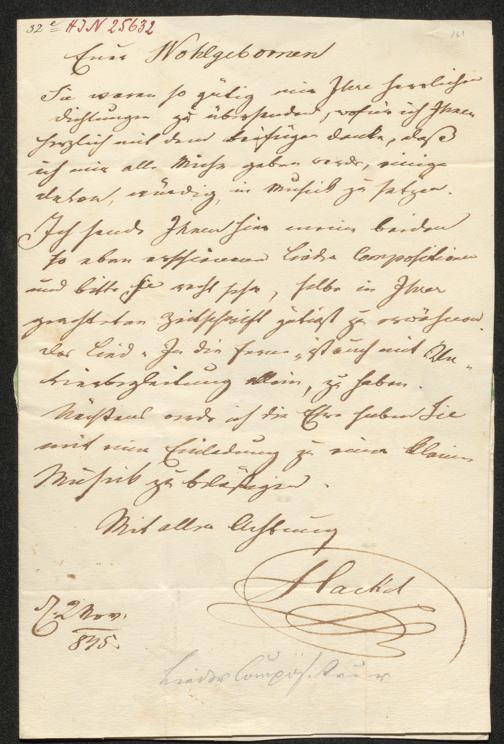 32e HIN 25632
161
Euer Wohlgebornen
Sie waren so gütig mir Ihre herrlichen
Dichtungen zu übersenden, wofür ich Ihnen
herzlich mit dem beifügen danke, daß
ich mir alle Mühe geben werde, einige
davon, würdig, in Musik zu setzen.
Ich sende Ihnen hier meine beiden
so eben erschienenen Lieder Compositionen
und bitte Sie recht sehr, selbe in Ihrer
geachteten Zeitschrift gütigst zu erwähnen.
Das Lied "In die Ferne" ist auch mit Cla-
vierbegleitung allein, zu haben.
Nächstens werde ich die Ehre haben Sie
mit einer Einladung zu einer kleinen
Musik zu belästigen.
Mit aller Achtung
Hackel
2 Nov.
845.
Lieder Compositeur